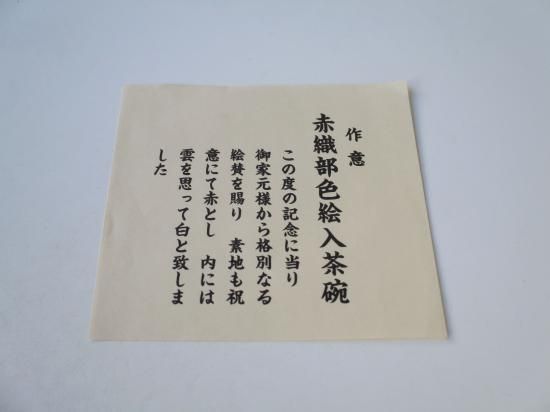 作意
赤織部色絵入茶碗
この度の記念に当り
御家元様から格別なる
絵賛を賜り　素地も祝
意にて赤とし　内には
雲を思って白と致しま
した